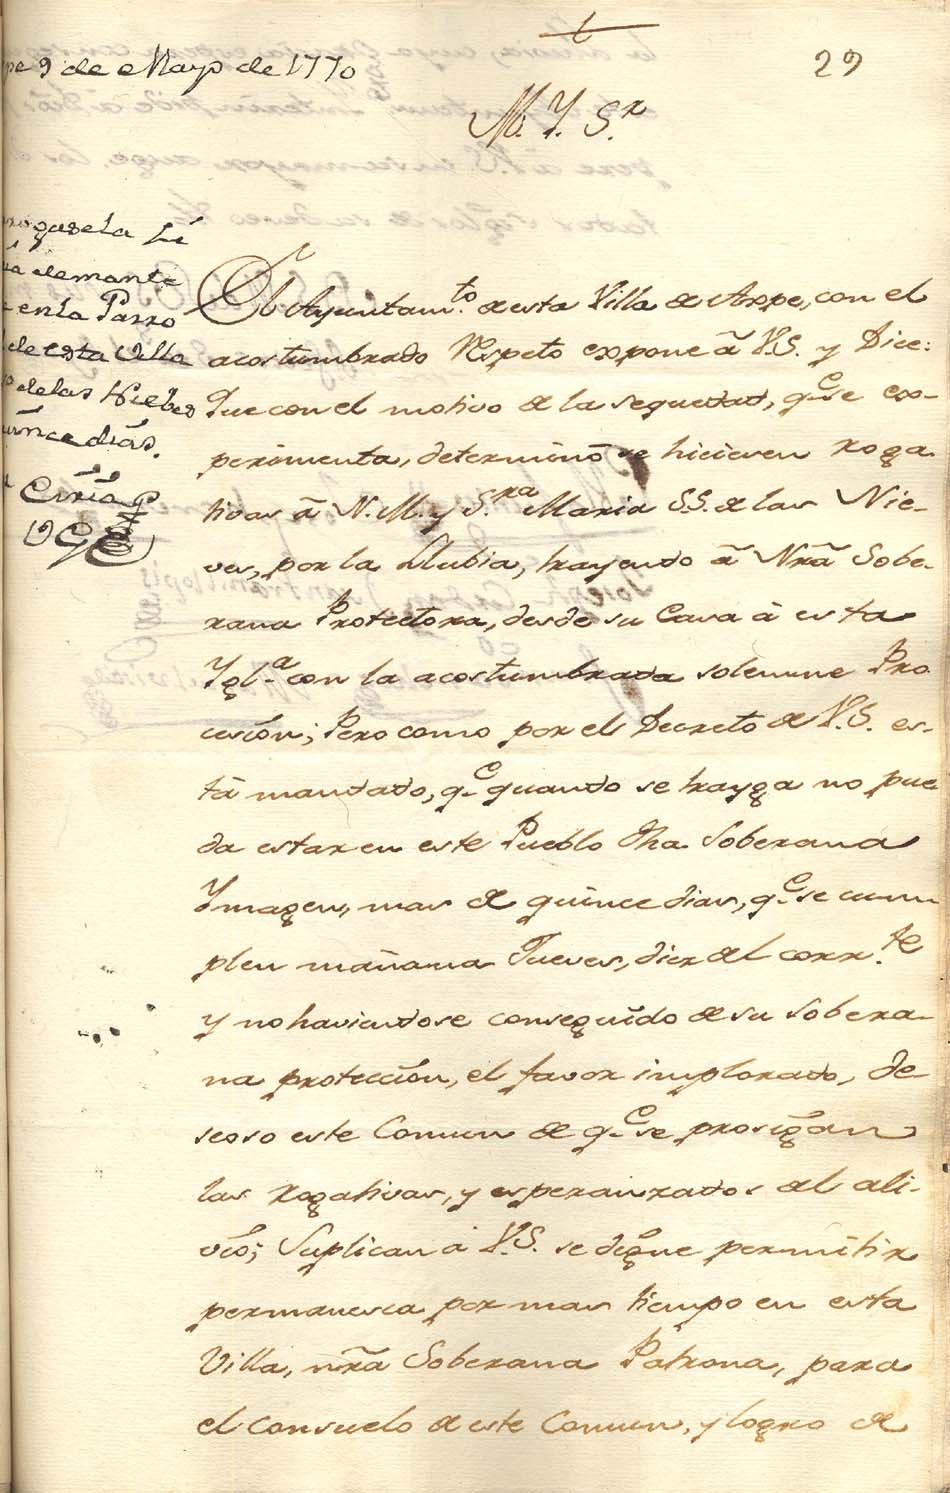 t
29
9 de Mayo de 1770
M. Y. S.r
la Li
demante
en la Parro
de esta Villa
de las Niebes
quince dias.
El Ayuntam.to de esta Villa de Aspe, con el
acostumbrado Respeto expone â V.S. y Dice:
Que con el motivo de la sequedad, q.e se ex-
perimenta, determinô se hiciesen roga
tivas â N. M. y S.ra Maria SS. de las Nie-
ves, por la Llubia, trayendo â Nrã Sobe-
rana Protectora, desde su Casa â esta
Ygl.a con la acostumbrada solemne Pro
cesión; Pero como por el Decreto de V.S. es-
tâ mandado, q.e quando se trayga no pue
da estar en este Pueblo dha. Soberana
Ymagen, mas de quince dias, q.e se cum
plen mañana Jueves, diez del corr.te
y no haviendose conseguido de su Sobera-
na protección, el favor implorado, de-
seoso este Comun de q.e se prosigan
las rogativas, y esperanzados del ali-
vio; Suplican â V.S. se digne permitir
permanesca por mas tiempo en esta
Villa, nrã Soberana Patrona, para
el consuelo de este Comun, y logro de